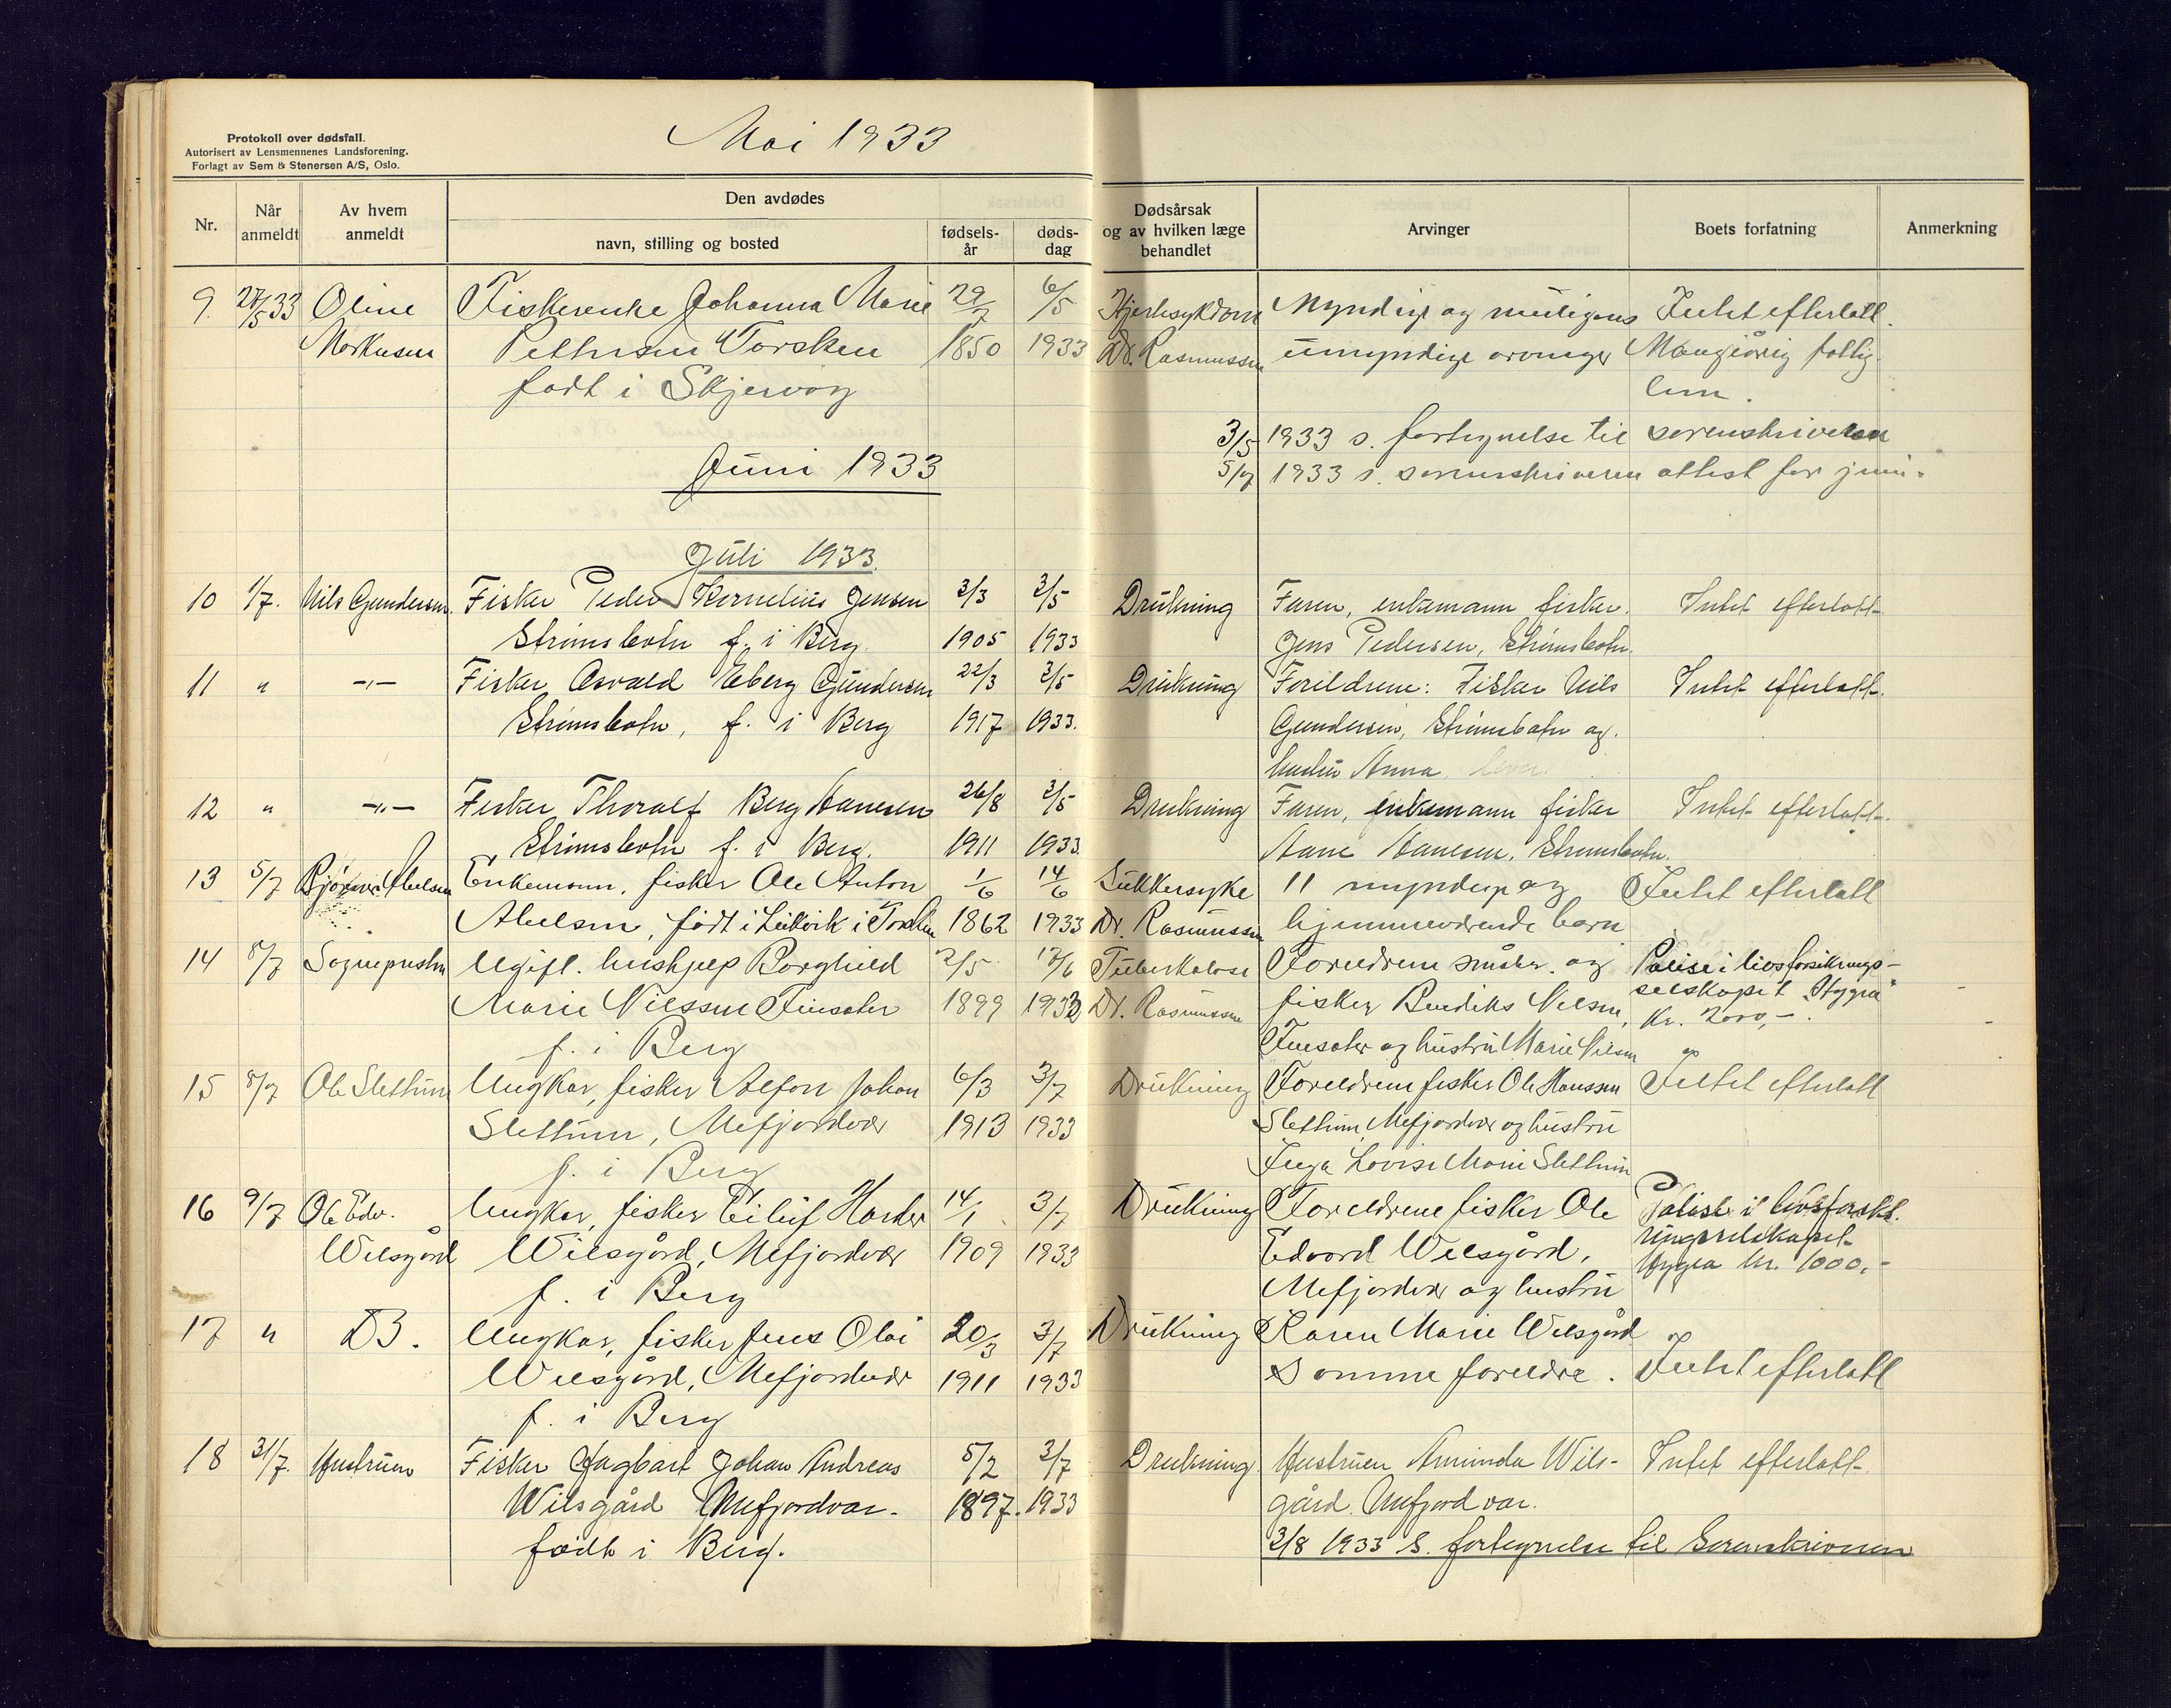 Protokoll over dødsfall.
Autorisert av Lensmennenes Landsforening.
Forlagt av Sem & Stenersen A/S, Oslo.
Mai 1933
Nr.
Når anmeldt
Av hvem anmeldt
Den avdødes
navn, stilling og bosted
fødsels-år
døds-dag
Dødsårsak og av hvilken læge behandlet
Arvinger
Boets forfatning
Anmerkning
9. 27/5 33 Oline Fiskerenke Johanna Marie 29/7 6/5 Hjertesykdom Myndige og muligens Intet efterlatt.
Markusen Pettersen Torsken 1850 1933 Dr. Rasmussen umyndige arvinger Mangeårig fattig-
født i Skjervøy lem.
3/5 1933 s. fortegnelse til sorenskriveren
Juni 1933 5/7 1933 s. sorenskriveren attest for juni.
Juli 1933.
10 1/7. Nils Gundersen. Fisker Peder Kornelius Jensen 3/3 3/5 Drukning Faren, enkemann fisker. Intet efterlatt
Strømsbotn f. i Berg. 1905 1933 Jens Pedersen, Strømsbotn.
11 " -"- Fisker Osvald Eberg Gundersen 22/3 3/5 Drukning Foreldrene: Fisker Nils Intet efterlatt.
Strømsbotn, f. i Berg 1917 1933. Gundersen, Strømsbotn og
hustru Anna
12 " -"- Fisker Thoralf Berg Hanssen 26/8 3/5 Drukning Faren, enkemann fisker Intet efterlatt.
Strømsbotn f. i Berg. 1911 1933. Hans Hansen, Strømsbotn.
13 5/7 Abelsen Enkemann, fisker Ole Anton 1/6 14/6 Sukkersyke 11 myndige og Intet efterlatt
Abelsen, født i Leikvik i Torsken 1862 1933 Dr. Rasmussen hjemmeværende barn
14 8/7 Sognepresten Ugift. hushjelp Borghild 2/5 17/6 Tuberkolose Foreldrene småbr. og Polise i livsforsikrings-
Marie Nilssen Finsæter 1899 1933 Dr. Rasmussen fisker Bendiks Nilsen, selskapet "Hygea"
f. i Berg Finsæter og hustru Marie Nilsen Kr. 2000,-.
15 8/7 Ole Slettum Ungkar, fisker Alfon Johan 6/3 3/7 Drukning Foreldrene fisker Ole Hanssen Intet efterlatt
Slettum, Mefjordvær 1913 1933 Slettum, Mefjordvær og hustru
f. i Berg Inga Lovise Marie Slettum
16 9/7 Ole Edv. Ungkar, fisker Eiluf Harder 14/1 3/7 Drukning Foreldrene fisker Ole Polise i livsforsik-
Wilsgård Wilsgård, Mefjordvær 1909 1933 Edvard Wilsgård, ringsselskapet
f. i Berg Mefjordvær og hustru Hygea kr. 1000,-
17 " DS. Ungkar, fisker Jens Olai 20/3 3/7 Drukning Karen Marie Wilsgård
Wilsgård, Mefjordvær 1911 1933 Samme foreldre. Intet efterlatt
f. i Berg
18 31/7. Hustruen Fisker Dagbart Johan Andreas 5/2 3/7 Drukning Hustruen Aminda Wils- Intet efterlatt
Wilsgård Mefjordvær. 1897. 1933 gård. Mefjordvær.
født i Berg. 3/8 1933 S. fortegnelse til Sorenskriveren